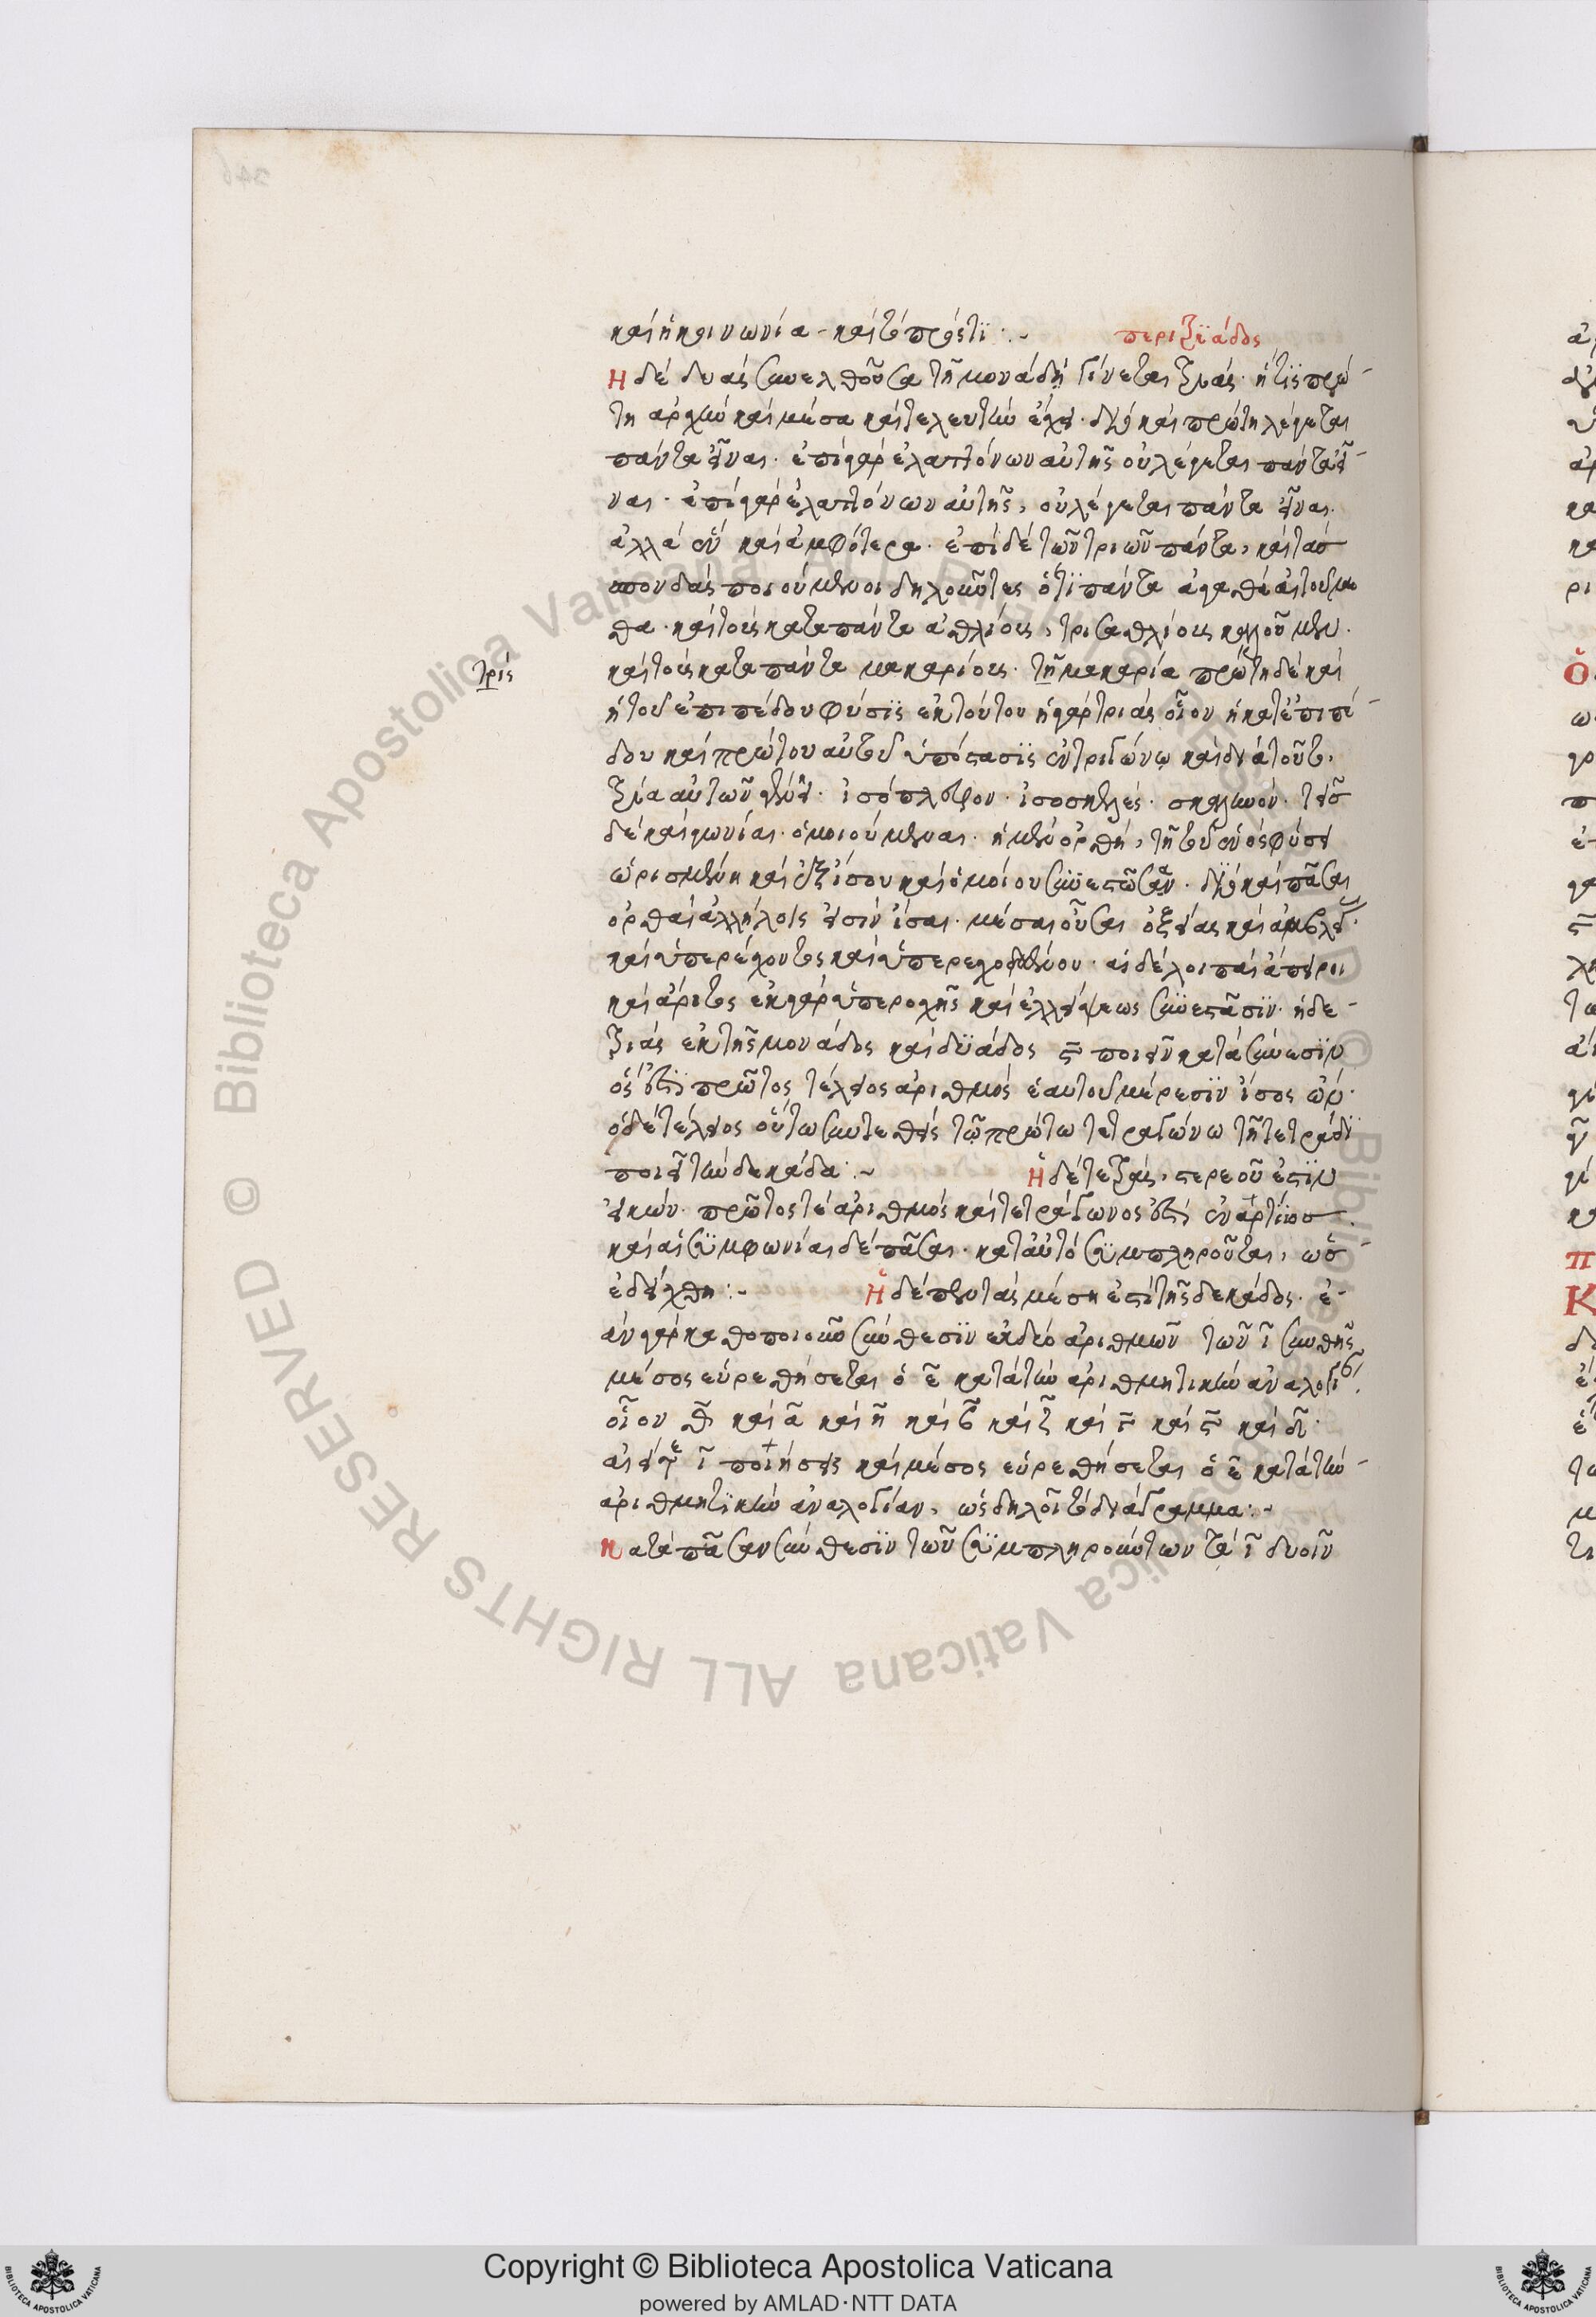 καὶ ἡ κοινωνία – καὶ τὸ πρός τϊ :– περὶ τριάδος
Η δὲ δυὰς συνελθοῦσα τῇ μονάδι γίνεται τριάς· ἥτις πρώ-
τη ἀρχὴν καὶ μέσα καὶ τελευτὴν ἔχει· διὸ καὶ πρώτη λέγεται
πάντα εἶναι· ἐπὶ γὰρ ἐλαττόνων αὐτῆς οὐ λέγεται πάντα εἶ-
ναι· ἐπὶ γὰρ ἐλαττόνων αὐτῆς, οὐ λέγεται πάντα εἶναι·
ἀλλὰ ἓν καὶ ἀμφότερα· ἐπὶ δὲ τῶν τριῶν πάντα, καὶ τὰς
σπονδὰς ποιούμενοι δηλοῦντες ὅτι πάντα ἀγαθὰ αἰτούμε
θα· καὶ τοὺς κατὰ πάντα ἀθλίους, τρισαθλίους καλοῦμεν·
τρίς
καὶ τοὺς κατὰ πάντα μακαρίους· τῇ μακαρία πρώτη δὲ καὶ
ἡ τοῦ ἐπιπέδου φύσις ἐκ τούτου ἡ γὰρ τριὰς οἷον ἡ κατ' ἐπιπέ-
δου καὶ πρώτου αὐτοῦ ὑπόστασις ἐν τριγώνῳ καὶ διὰ τοῦτο,
τρία αὐτῶν γένει· ἰσόπλευρον· ἰσοσκελές· σκαληνόν· τρεῖς
δὲ καὶ γωνίαι· ὁμοιούμεναι· ἡ μὲν ὀρθὴ, τῇ τοῦ ἑνὸς φύσει
ὡρισμένη καὶ ἐξ ἴσου καὶ ὁμοίου συνεστῶσαν· διὸ καὶ πᾶσαι
ὀρθαὶ ἀλλήλοις εἰσὶν ἴσαι· μέσαι οὖσαι ὀξείας καὶ ἀμβλεί·
καὶ ὑπερέχοντες καὶ ὑπερεχομένου· αἱ δὲ λοιπαὶ ἄπειροι
καὶ ἄριτες ἐκ γὰρ ὑπεροχῆς καὶ ἐλλείψεως συνεστᾶσιν· ἡ δε-
τριὰς ἐκ τῆς μονάδος καὶ δυάδος ϛ ποιεῖν κατὰ σύνεσιν
ὅς ἐστι πρῶτος τέλειος ἀριθμὸς ἑαυτοῦ μέρεσιν ἴσος ὤν·
ὁ δὲ τέλειος οὕτω συντεθεὶς τῷ πρώτω τετραγώνω τῇ τετράδϊ
ποιεῖ τὴν δεκάδα :– Ἡ δὲ τετράς, στερεοῦ ἐστὶν
εἰκών· πρῶτος τὲ ἀριθμὸς καὶ τετράγωνος ἐστὶ ἐν ἀρτίοις
καὶ αἱ συμφωνίαι δὲ πᾶσαι· κατ' αὐτὸ συμπληροῦται, ὡς
ἐδείχθη :– Ἡ δὲ πεντὰς μέση ἐστὶ τῆς δεκάδος· ἐ-
ὰν γὰρ καθοποιοῦν σύνθεσιν ἐκ δύο ἀριθμῶν τῶν ι συνθῇς
μέσος εὑρεθήσεται ὁ ε κατὰ τὴν ἀριθμητικὴν ἀναλογί
οἷον θ καὶ α καὶ η καὶ β καὶ ζ καὶ γ καὶ ϛ καὶ δ·
ἀεί γε ι ποιήσεις καὶ μέσος εὑρεθήσεται ὁ ε κατὰ τὴν-
ἀριθμητικὴν ἀναλογίαν, ὡς δηλοῖ τὸ διάγραμμα :–
Κατὰ πᾶσαν σύνθεσιν τῶν συμπληρούντων τὰ ι δυοῖν
Copyright © Biblioteca Apostolica Vaticana
powered by AMLAD·NTT DATA